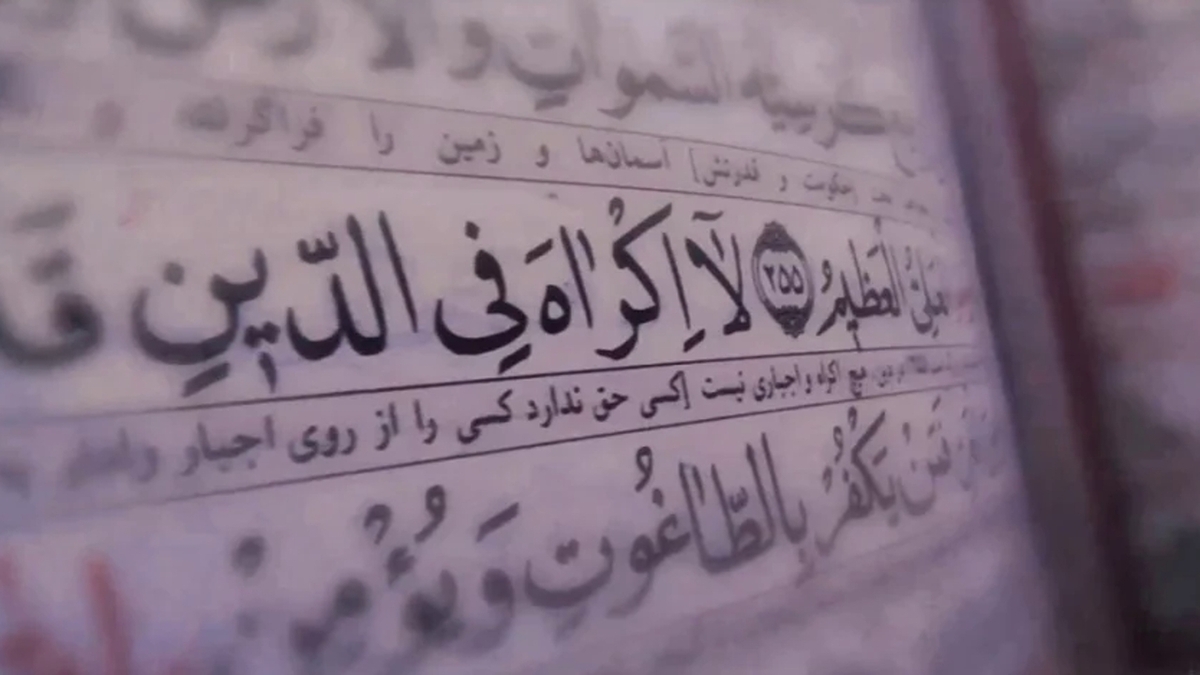 كُرْسِيُّهُ السَّمٰوَاتِ وَالْاَرْضَ
حکومت و قدرتش] آسمان‌ها و زمین را فراگرفته
الْعَظِيمُ ﴿۲۵۵﴾ لَآ اِكْرَاهَ فِي الدِّينِ
هیچ اکراه و اجباری نیست [کسی حق ندارد کسی را از روی اجبار
يَكْفُرْ بِالطَّاغُوتِ وَيُؤْمِنْ